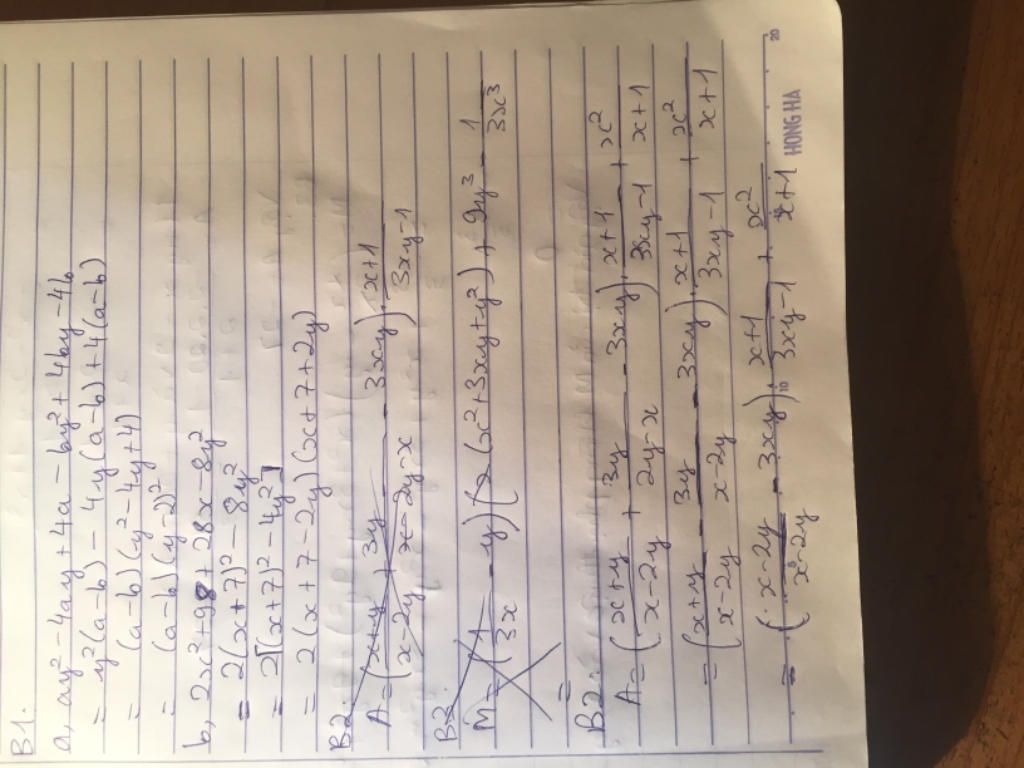 B1.
a, ay² - 4ay + 4a - by² + 4by - 4b
= y²(a-b) - 4y(a-b) + 4(a-b)
= (a-b)(y²-4y+4)
= (a-b)(y-2)²
b, 2x² + 98 + 28x - 8y²
= 2(x+7)² - 8y²
= 2[(x+7)² - 4y²]
= 2(x+7-2y)(x+7+2y)
B2.
A = (x+y/x-2y + 3y/2y-x - 3xy) · x+1/3xy-1
B2.
M = (1/3x - y)(2x²+3xy+y²) + 9y³ - 1/3x³
=
B2.
A = (x+y/x-2y + 3y/2y-x - 3xy) · x+1/3xy-1 + x²/x+1
= (x+y/x-2y - 3y/x-2y - 3xy) · x+1/3xy-1 + x²/x+1
= (x-2y/x-2y - 3xy) · x+1/3xy-1 + x²/x+1
10
20
HONG HA